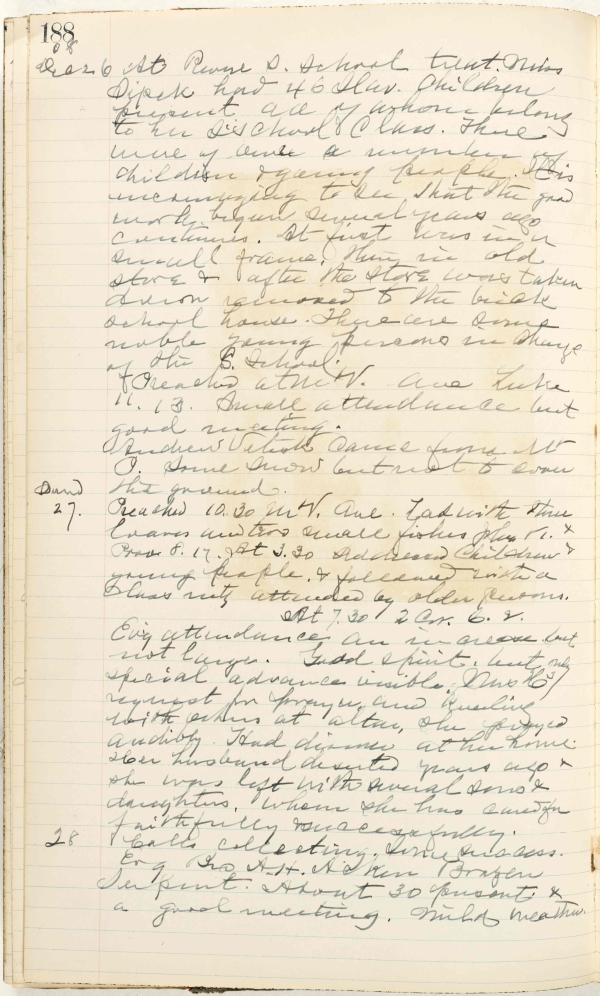 188
08
Dec 26 At Revere S. School treat. Miss
Sipek had 46 Slav. Children
present all of whom belong
to her S. School Class. There
were of over a number of
children & young people. It is
encouraging to see that the good
work begun several years ago
continues. At first was in a
small frame, then in old
store & after the store was taken
down removed to the brick
school house. There are some
noble young persons in charge
of the S. School.
Preached at Mt V. Ave Luke
11. 13. Small attendance but
good meeting.
Andrew came from Mt
P. Some snow but not to cover
the ground.
27. Preached 10.30 Mt V. Ave. Lad with three
loaves and two small fishes John VI. &
Prov 8. 17. At 3.30 addressed Children &
young people & followed with a
Class mtg attended by older persons.
At 7.30 2 Cor. 6. 2.
Ev'g attendance an increase but
not large. Good spirit, but no
special advance visible. Mrs
request for prayer, and kneeling
with others at altar, she prayed
audibly. Had dinner at her home.
Her husband deserted years ago &
she was left with several sons &
daughters, whom she has cared for
faithfully & successfully.
28 Calls collecting. Some success.
Ev'g Bro A. H. Brazen
Serpent. About 30 present &
a good meeting. Mild weather.